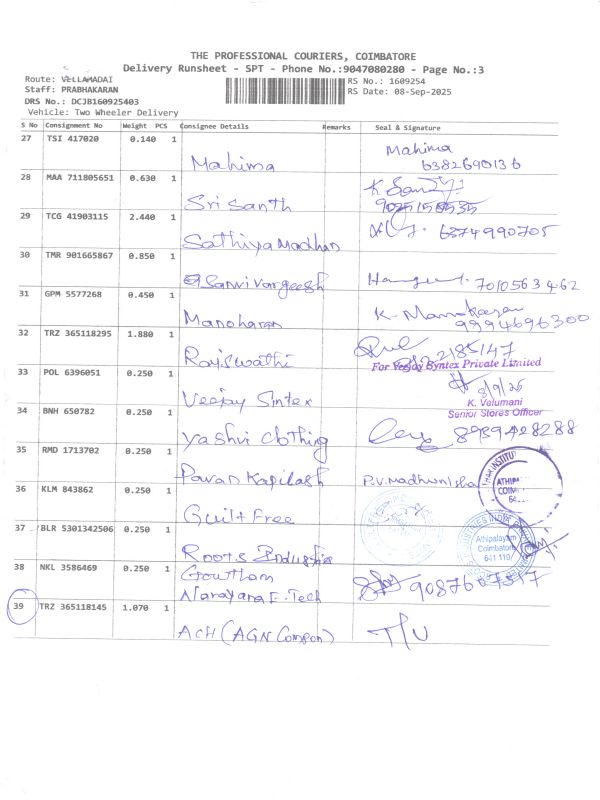 THE PROFESSIONAL COURIERS, COIMBATORE
Delivery Runsheet - SPT - Phone No.:9047080280 - Page No.:3
Route: VELLAMADAI
RS No.: 1609254
Staff: PRABHAKARAN
RS Date: 08-Sep-2025
DRS No.: DCJB160925403
Vehicle: Two Wheeler Delivery
S No Consignment No Weight PCS Consignee Details Remarks Seal & Signature
27 TSI 417020 0.140 1 Mahima Mahima
6382690136
28 MAA 711805651 0.630 1 Sri Santh
29 TCG 41903115 2.440 1 Sathiya Madhan 6374990705
30 TMR 901665867 0.850 1 Sanvi Vargeesh 7010563462
31 GPM 5577268 0.450 1 Manoharan K. Manoharan
9994696300
32 TRZ 365118295 1.880 1 Rajswathi
For Veejay Syntex Private Limited
33 POL 6396051 0.250 1 Veejay Sintex 8/9/25
K. Velumani
Senior Stores Officer
34 BNH 650782 0.250 1 Yashvi Clothing 8939428288
35 RMD 1713702 0.250 1 Pavan Kapilash P.V. Madhunisha
ATHIPA
COIM
36 KLM 843862 0.250 1 Guilt Free
37 BLR 5301342506 0.250 1 Roots Industries
Athipalayam
Coimbatore
641 110
38 NKL 3586469 0.250 1 Gowtham
Narayana E-Tech
39 TRZ 365118145 1.070 1 ACH (AGN Compon) T/U